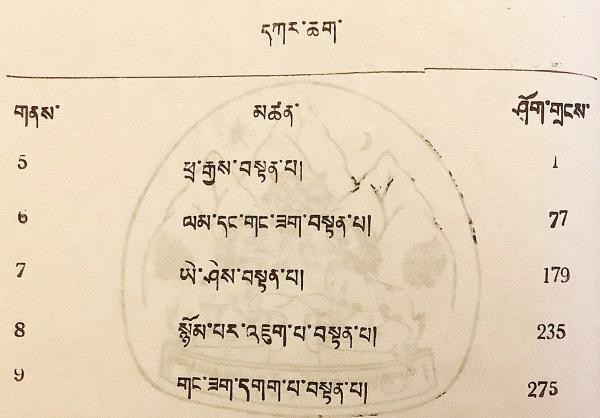 དཀར་ཆག་
གནས་ མཚན་ ཤོག་གྲངས་
5 ཕྲ་རྒྱས་བསྟན་པ། 1
6 ལམ་དང་གང་ཟག་བསྟན་པ། 77
7 ཡེ་ཤེས་བསྟན་པ། 179
8 སྙོམ་པར་འཇུག་པ་བསྟན་པ། 235
9 གང་ཟག་དགག་པ་བསྟན་པ། 275